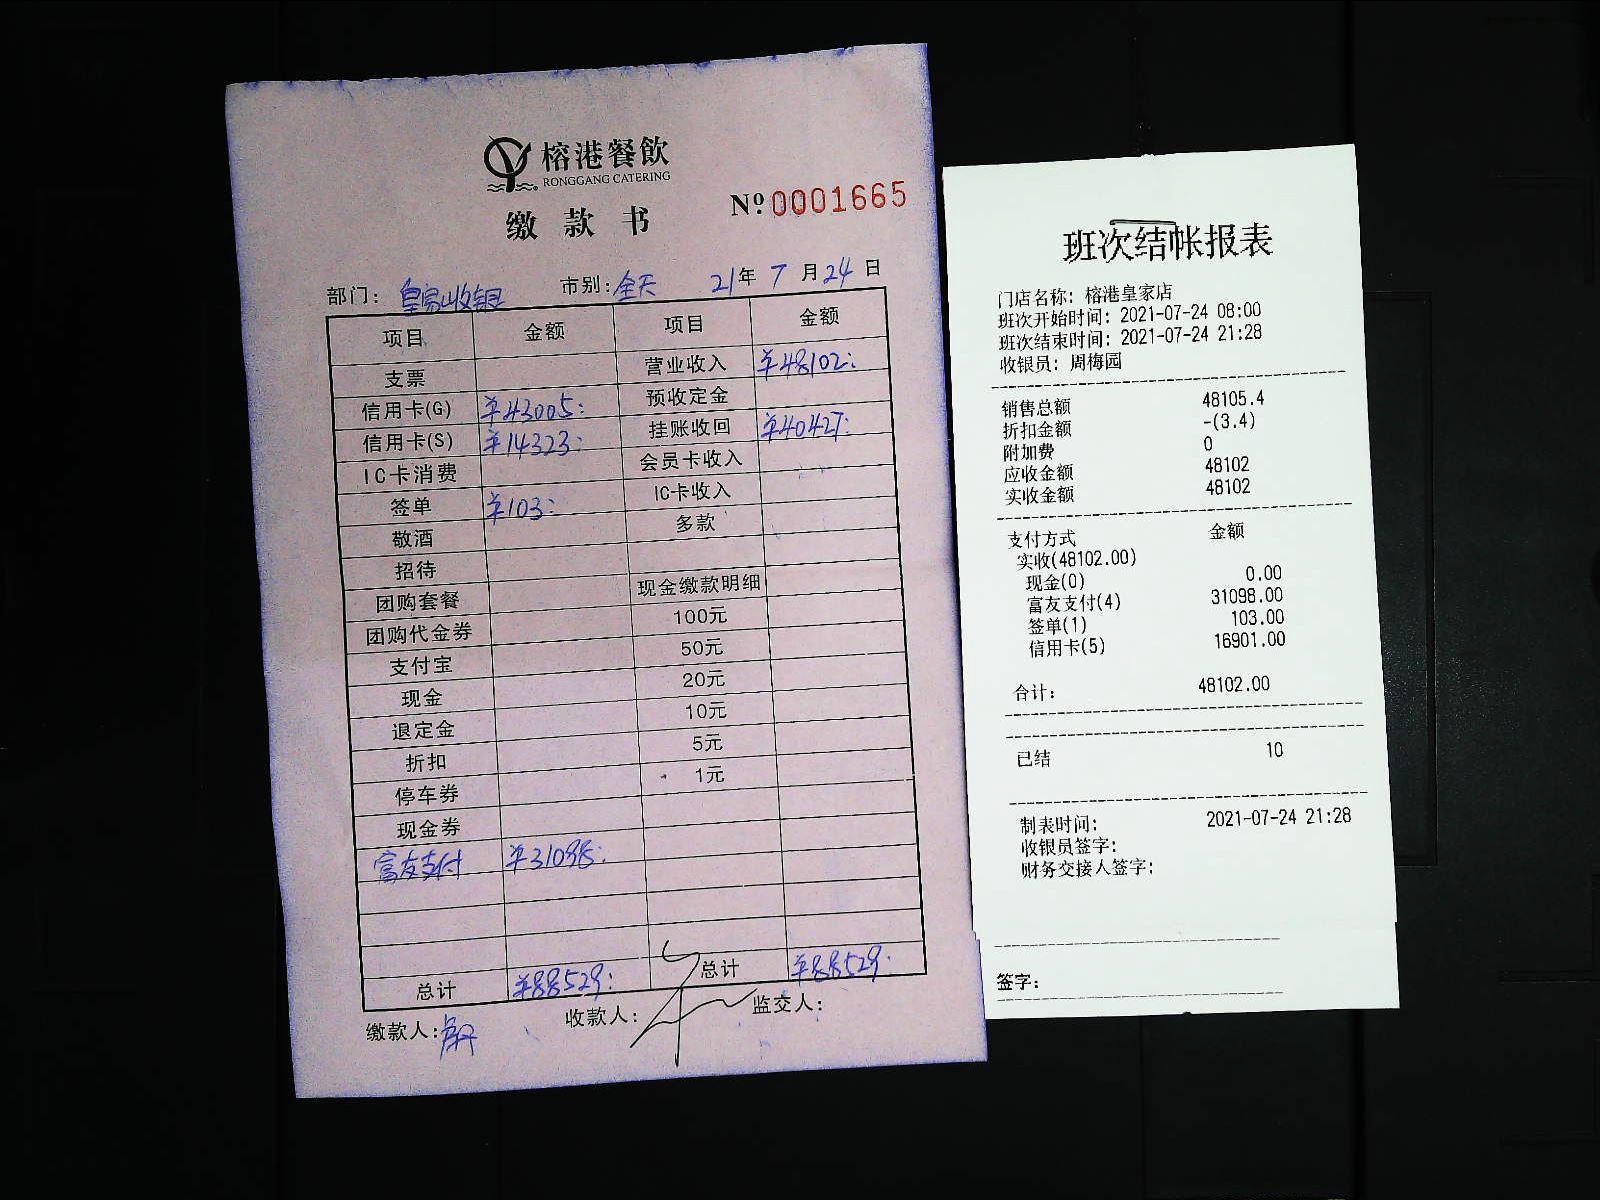 榕港餐飲
RONGGANG CATERING
缴款书
Nº 0001665
部门: 皇家收银 市别: 全天 21年 7月 24日
项目 金额 项目 金额
支票 营业收入 ¥48102:
信用卡(G) ¥43005: 预收定金
信用卡(S) ¥14323: 挂账收回 ¥40427:
IC卡消费 会员卡收入
签单 ¥103: IC卡收入
敬酒 多款
招待
团购套餐 现金缴款明细
团购代金券 100元
支付宝 50元
现金 20元
退定金 10元
折扣 5元
停车券 1元
现金券
富友支付 ¥31098:
总计 ¥88529: 总计 ¥88529:
缴款人: 收款人: 监交人:
班次结帐报表
门店名称: 榕港皇家店
班次开始时间: 2021-07-24 08:00
班次结束时间: 2021-07-24 21:28
收银员: 周梅园
销售总额 48105.4
折扣金额 -(3.4)
附加费 0
应收金额 48102
实收金额 48102
支付方式 金额
实收(48102.00)
现金(0) 0.00
富友支付(4) 31098.00
签单(1) 103.00
信用卡(5) 16901.00
合计: 48102.00
已结 10
制表时间: 2021-07-24 21:28
收银员签字:
财务交接人签字:
签字: